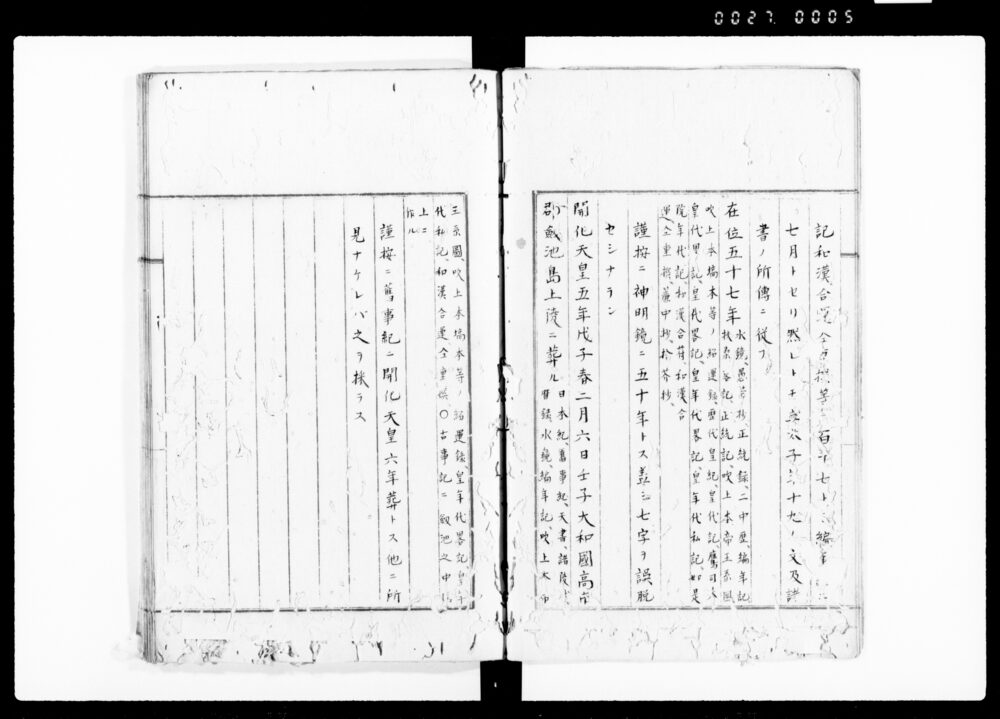 0027.0005
記和漢合運全重撰等 百 七ト 編年
七月トセリ然レトモ 太子 十九ノ文及諸
書ノ所傳ニ從フ
在位五十七年 水鏡、愚管抄、正統録、二中歴、編年記
扶桑 記、正統記、吹上本帝王系圖
吹上本 本等ノ紹運録、歴代皇紀、皇代記、鷹司本
皇代畧記、皇代畧記、皇年代畧記、皇年代私記、如是
院年代記、和漢合符、和漢合
運、全重撰、簾中抄、拾芥抄、
謹按ニ神明鏡ニ五十年トス蓋シ七字ヲ誤脱
セシナラン
開化天皇五年戊子春二月六日壬子大和國高市
郡劔池島上陵ニ葬ル 日本紀、舊事紀、天書、諸陵式、
水鏡、編年記、吹上本帝
王系圖、吹上本 本等ノ紹運録、皇年代畧記、皇年
代私記、和漢合運、全重撰〇古事記ニ劔池之中岡
上ニ
作ル
謹按ニ舊事紀ニ開化天皇六年葬トス他ニ所
見ナケレバ之ヲ採ラス